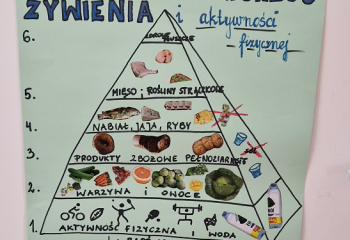 ŻYWIENIA
i aktywności
fizycznej
6.
ZDROWE
TŁUSZCZE
5.
MIĘSO i ROŚLINY STRĄCZKOWE
4.
NABIAŁ, JAJA, RYBY
3.
PRODUKTY ZBOŻOWE PEŁNOZIARNISTE
2.
WARZYWA i OWOCE
1.
AKTYWNOŚĆ FIZYCZNA i WODA